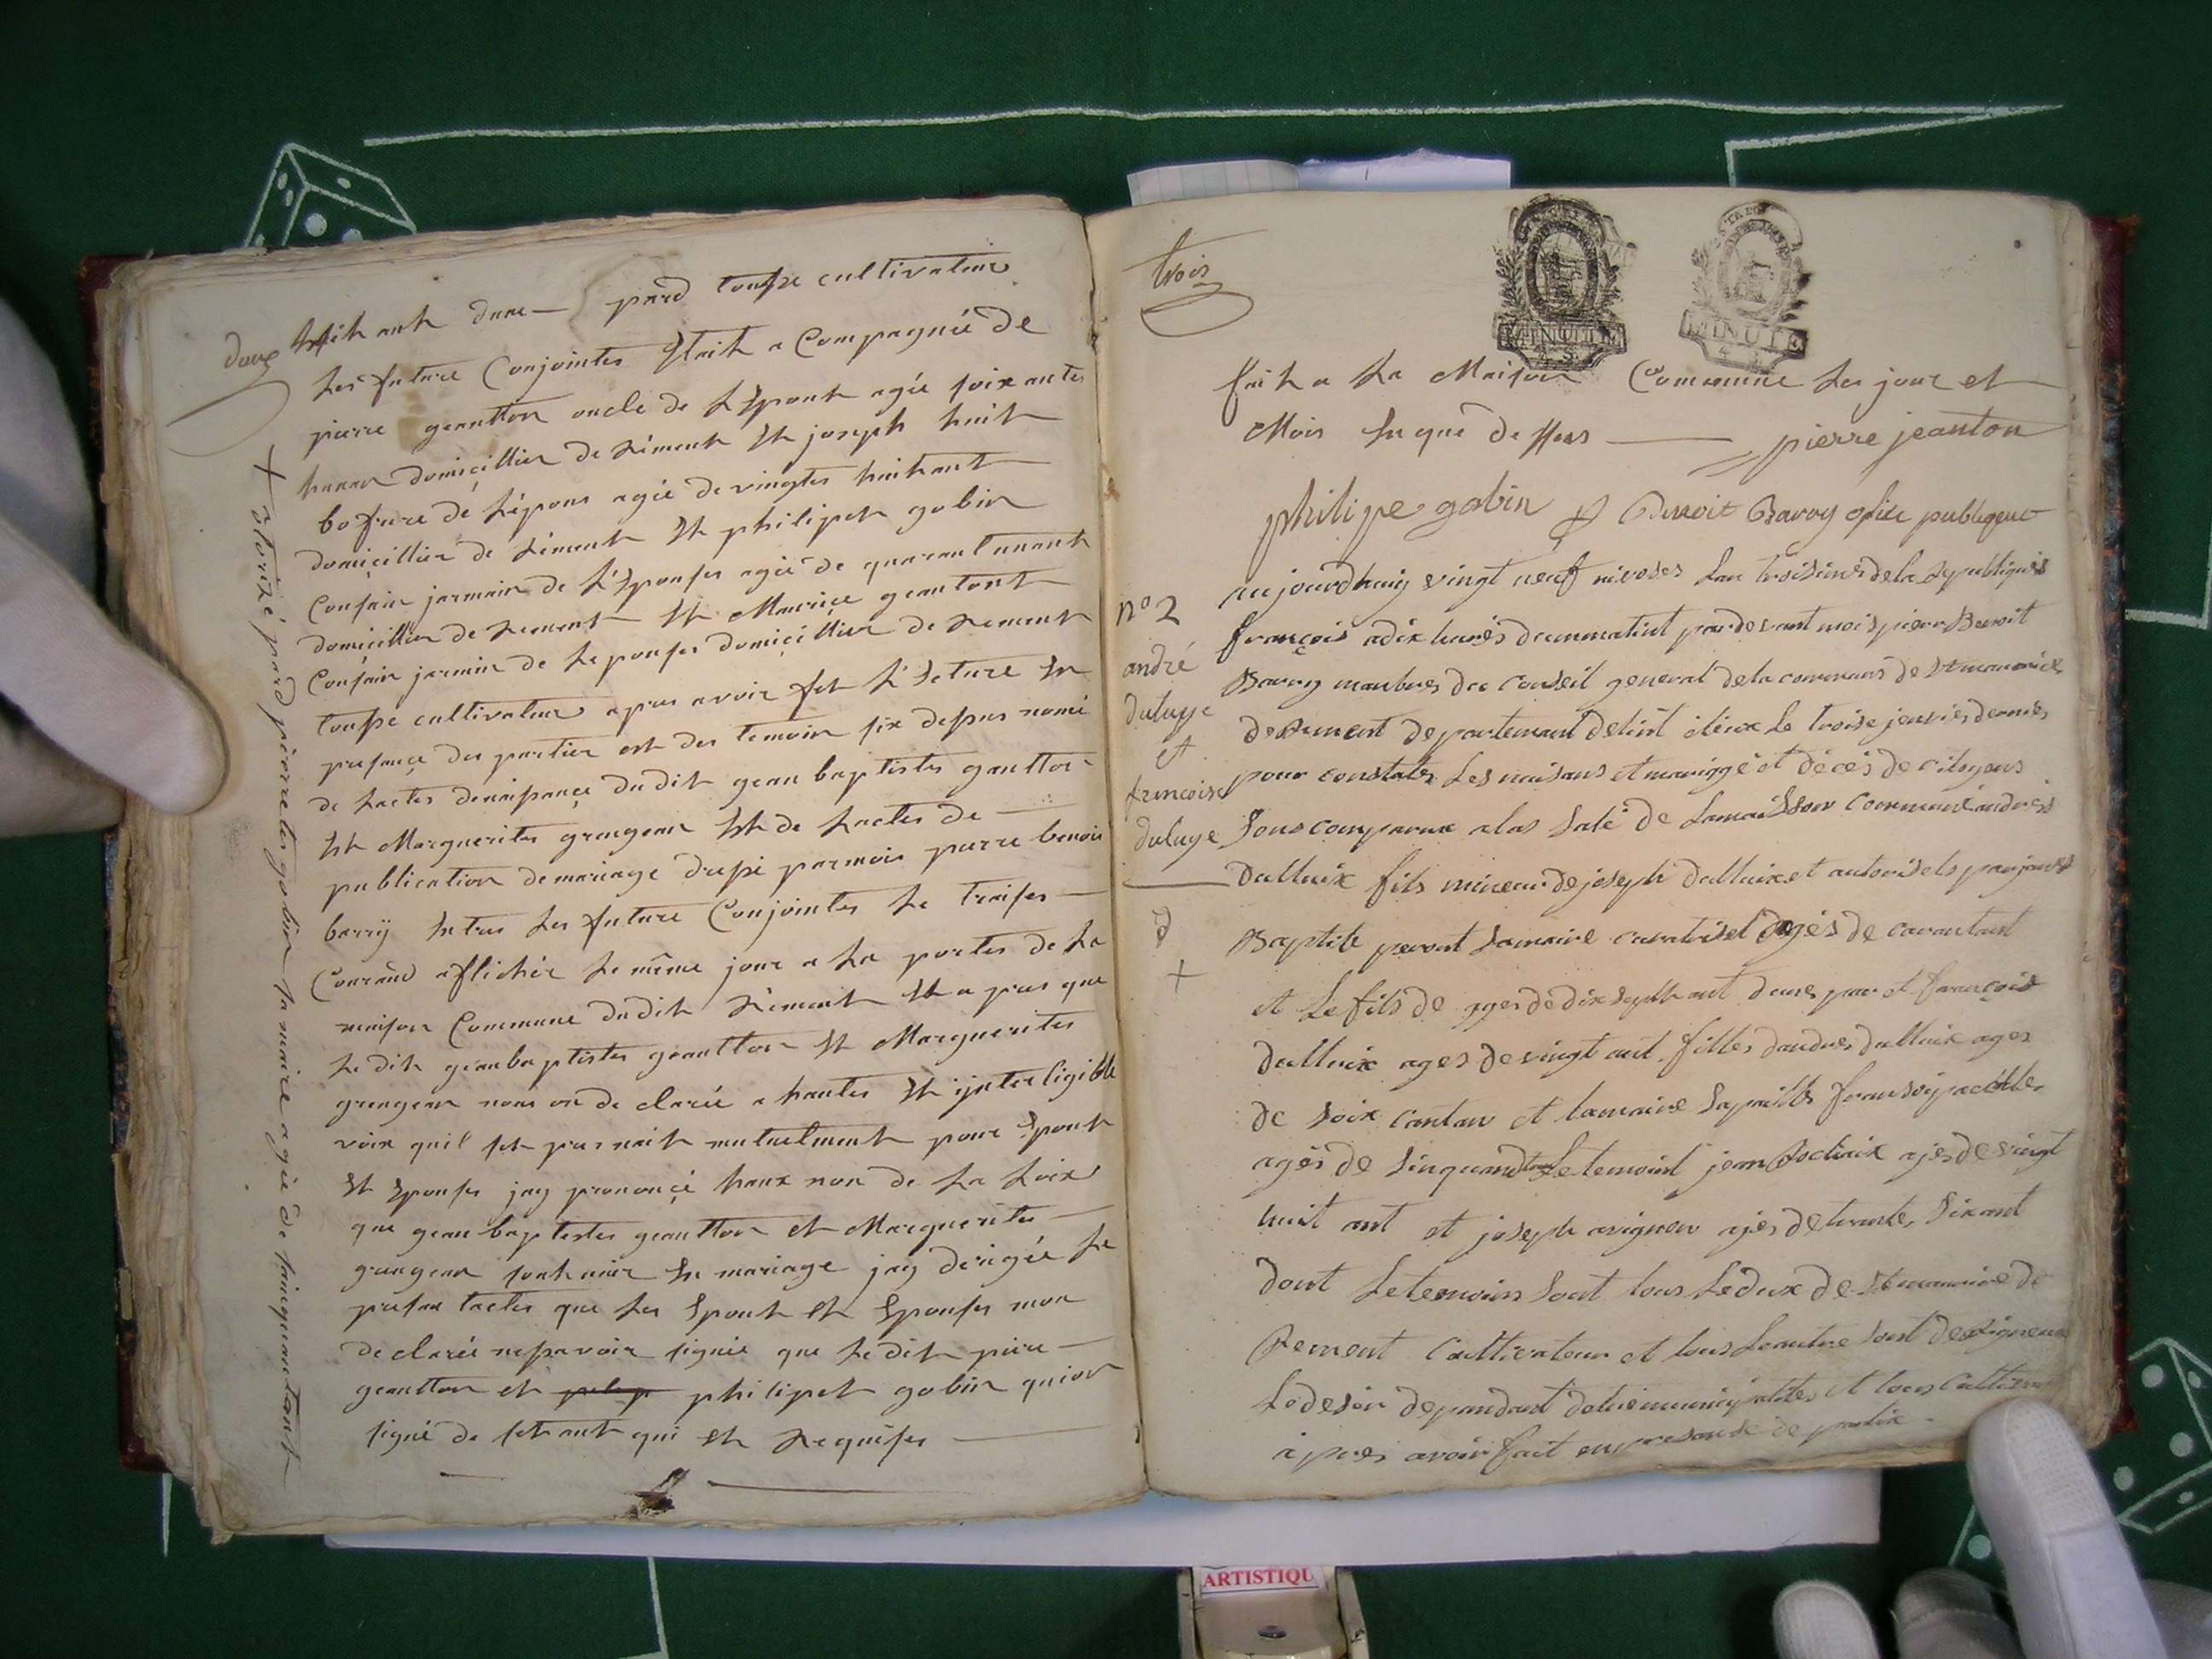 deux
huit ant dune — pard touse cultivateur
Les future Conjointes Etait a Compagnée de
pierre geantton oncle de L'Epout agée soixantes
domicillier de Rement Et joseph huit
bofrure dé L'épous agée de vingtes huitant
domicillier de Rément Et philipet gobin
Consain jarmain de L'Epouses agée de quarantunant
domicillier de Rement Et Maurice geantont
Consain jarmin de Lepouses domicillier de Rement
touse cultivateur apres avoir fet L'Ecture En
presance des partier est des temoin six depus nomé
de Lactes denaisance dudit gean baptistes gautton
Et Marguerites grangean Et de Lactes de —
publication de mariage dresé parmois pierre benoit
barry Entres Les future Conjointes Le traises —
Courand affichér Le même jour a La portes de La
maison Commune dudit Rément Et a pres que
Le dit geanbaptistes geantton Et Marguerites
grengean nous on de clarée a hautes Et ynteligible
voix quil set prennait mutuelment pour Epout
Et Epouses jay prononçé haux non de La Loix
que gean baptistes geantton et Margueritus —
grangean sont unir En mariage jay dérigée Le
presan tactes que Les Epout Et Epouses mon
de clarée nesavoir signée que Le dit piere —
geantton et philipet gobin quion
signé de set ant qui Et Requises —
+ otorizé pard pierretes gobin sa maire agée de sainquantant
trois
MINUTE
MINUTE
fait a La Maison Commune Les jour et
Mois En que dessus — pierre jeanton
philipe gobin Benoit Barry ofice publiqeut
nº 2
andré
duluye
et
francoise
duluye
aujourdhuiy vingt neuf nivoses Lan troisimes de la Republiques
françois a dix heurés dummatint par devant mois pierre Benoit
Barry manbres du Conseil general de la commune de St mauerice
de Rement departemant delint éleux Le troise jenvies dernies
pour constater Les naisans et mariggé et décés de citoyens
Sous comparue a las Salé de Lamaisson Commune andres
Dulluix fils mineur de joseph Dulluix et autorisets par jean
Baptite perout Lamaire curatriset âgés de carantant
et Le fils de ages dé dix septh ant dune par et françois
dulluix ages de vingt ant filles dandres dulluix ages
de Soix cantan et lamaire
agés de Sinquand Le temoint jean ajes de vingt
huit ant et joseph avignon ajes de trante Sixant
dont Le temoins Sont tous Ledeux de St mauerice de
Rement Cultivateur et tous Leautre Sont
Ledesin depandant municipalites et tous
à pres avoir fait en presansse de partie